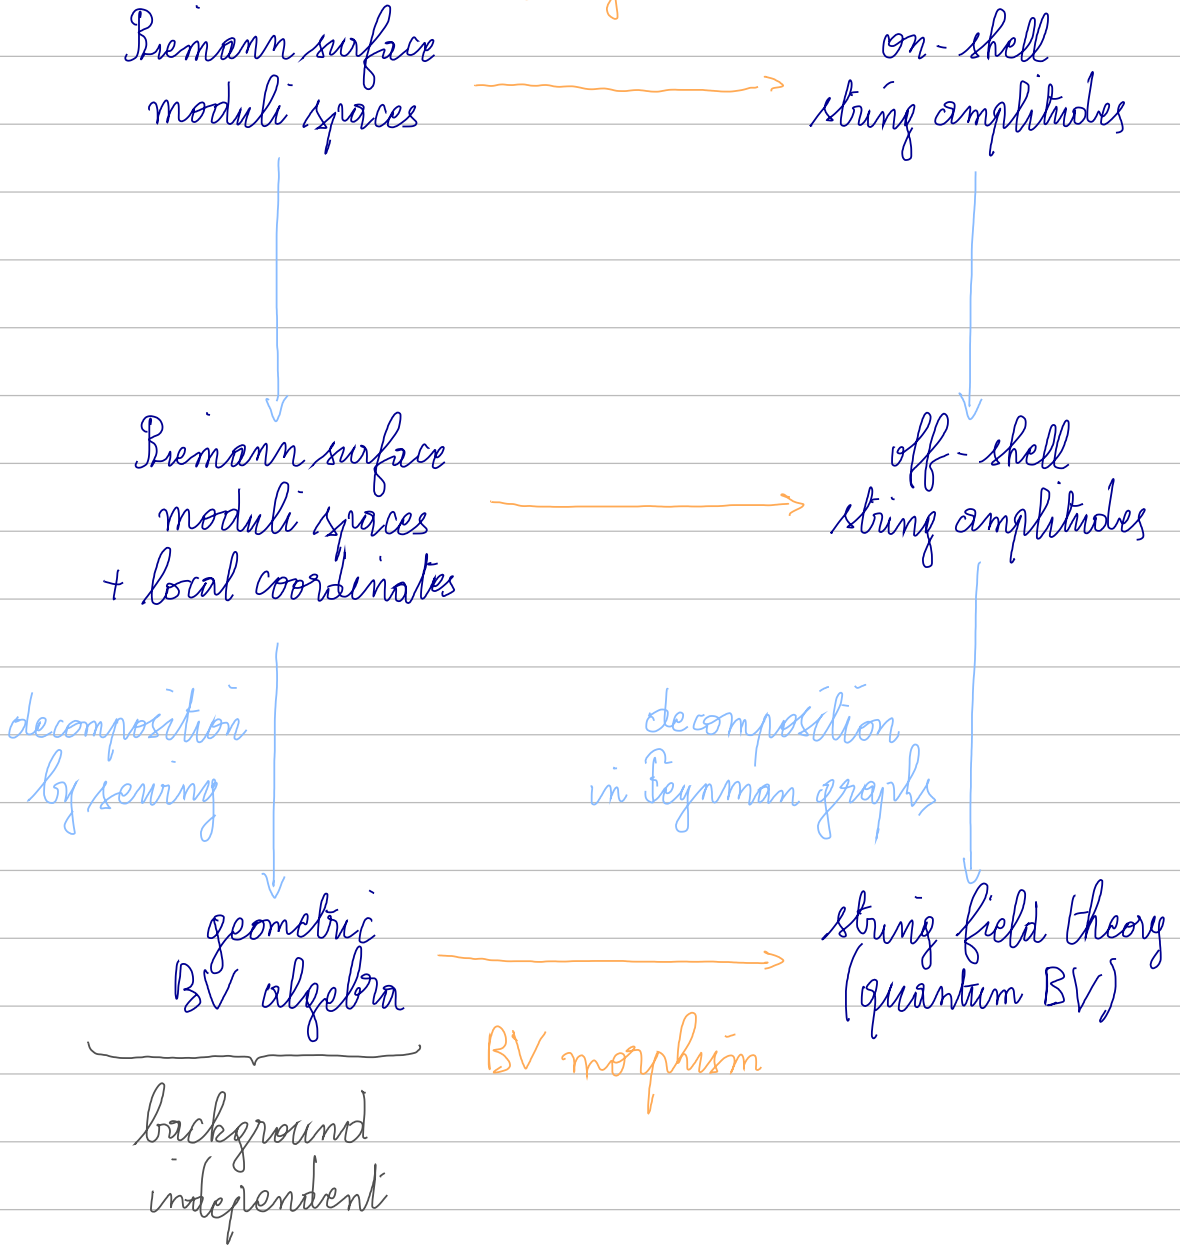 Riemann surface
moduli spaces
on-shell
string amplitudes
Riemann surface
moduli spaces
+ local coordinates
off-shell
string amplitudes
decomposition
by sewing
decomposition
in Feynman graphs
geometric
BV algebra
string field theory
(quantum BV)
BV morphism
background
independent